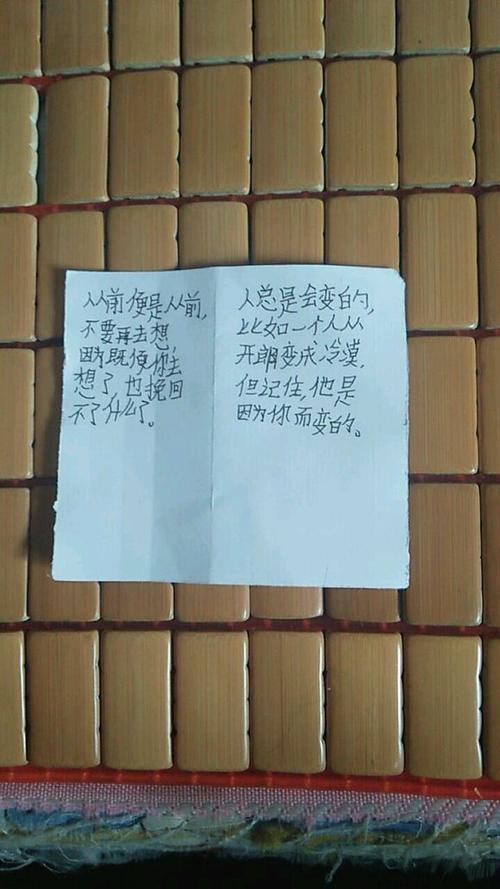 从前便是从前,
不要再去想,
因为既便你去
想了,也挽回
不了什么了。
人总是会变的,
比如一个人从
开朗变成冷漠,
但记住,他是
因为你而变的。